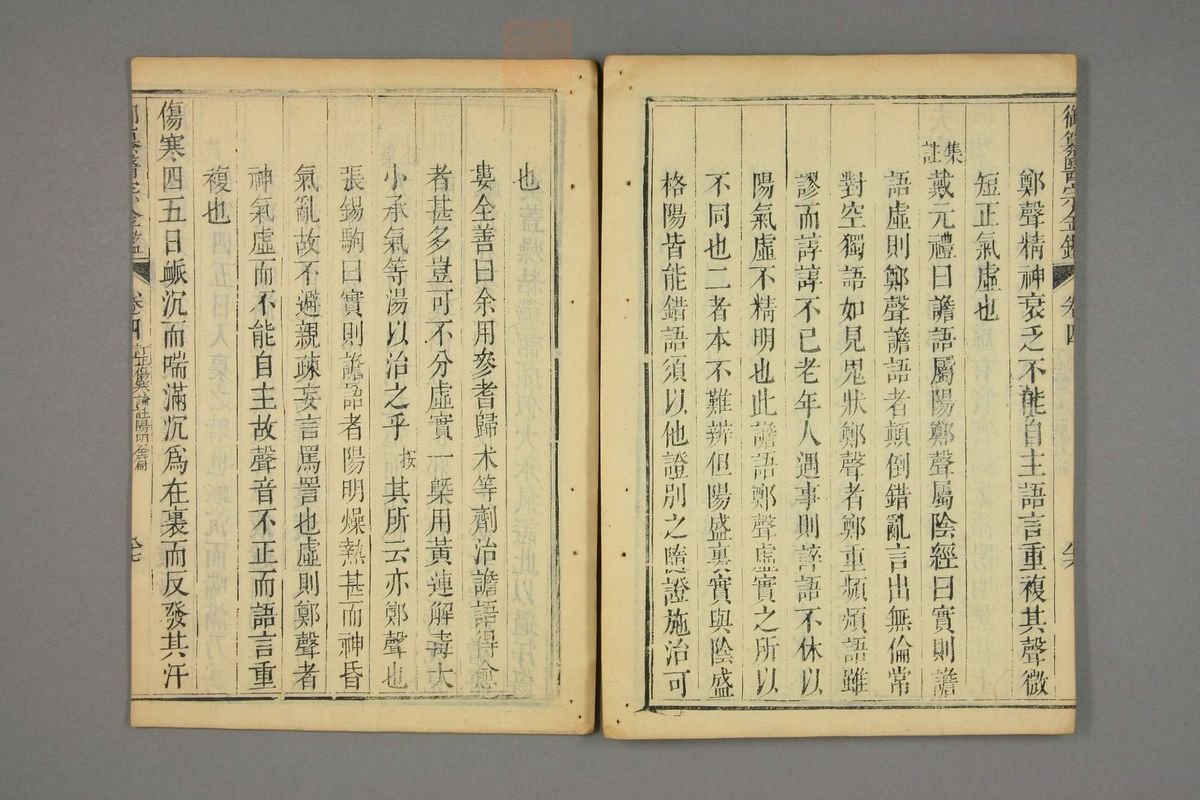 御纂醫宗金鑑 卷四
鄭聲精神衰乏不能自主語言重複其聲微
短正氣虛也
集註
戴元禮曰譫語屬陽鄭聲屬陰經曰實則譫
語虛則鄭聲譫語者顛倒錯亂言出無倫常
對空獨語如見鬼狀鄭聲者鄭重頻頻語雖
謬而諄諄不已老年人遇事則誶語不休以
陽氣虛不精明也此譫語鄭聲虛實之所以
不同也二者本不難辨但陽盛裏實與陰盛
格陽皆能錯語須以他證別之隨證施治可
也
婁全善曰余用參耆歸朮等劑治譫語得愈
者甚多豈可不分虛實一槩用黃連解毒大
小承氣等湯以治之乎 按 其所云亦鄭聲也
張錫駒曰實則譫語者陽明燥熱甚而神昏
氣亂故不避親疎妄言罵詈也虛則鄭聲者
神氣虛而不能自主故聲音不正而語言重
複也
傷寒四五日脈沉而喘滿沉爲在裏而反發其汗